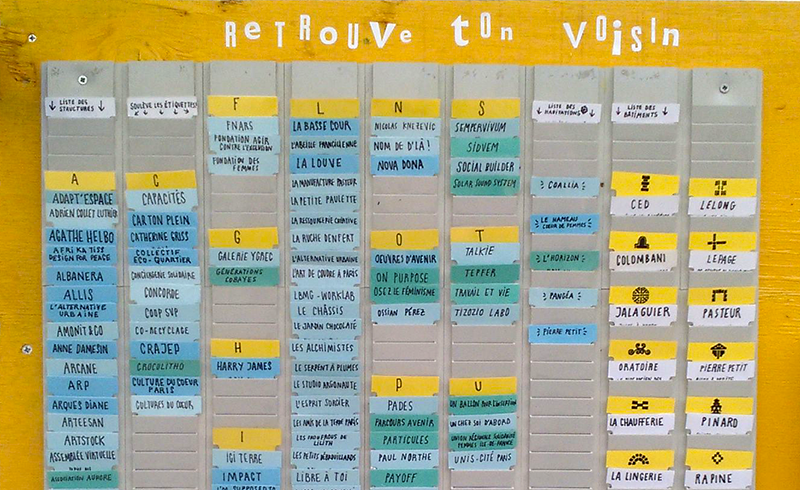 RETROUVE ton VOISIN
↓ LISTE DES STRUCTURES ↓
A
ADAPT'ESPACE
ADRIEN COLLET LUTHIER
AGATHE HELBO
AFRIKA TISS
DESIGN FOR PEACE
ALBANERA
ALLIS
L'ALTERNATIVE
URBAINE
AMONIT&CO
ANNE DAMESIN
ARCANE
ARP
ARQUES DIANE
ARTEESAN
ARTSTOCK
ASSEMBLÉE VIRTUELLE
ASSOCIATION AURORE
SOULÈVE LES ÉTIQUETTES!
C
CAPACITÉS
CARTON PLEIN
CATHERINE GRISS
COLLECTIF
ECO-QUARTIER
CONCIERGERIE SOLIDAIRE
CONCORDE
COOP SVP
CO-RECYCLAGE
CRAJEP
CROCULITHO
CULTURE DU COEUR
PARIS
CULTURES DU COEUR
F
FNARS
FONDATION AGIR
CONTRE L'EXCLUSION
FONDATION DES
FEMMES
G
GALERIE YGREC
GÉNÉRATIONS
COBAYES
H
HARRY JAMES
I
ICI TERRE
IMPACT
L
LA BASSE COUR
L'ABEILLE FRANCILIENNE
LA LOUVE
LA MANUFACTURE PASTEUR
LA PETITE PAULETTE
LA RESSOURCERIE CRÉATIVE
LA RUCHE DENFERT
L'ALTERNATIVE URBAINE
L'ART DE COUDRE À PARIS
LBMG-WORKLAB
LE CHÂSSIS
LE JARDIN CHOCOLATÉ
LES ALCHIMISTES
LE SERPENT À PLUMES
LE STUDIO ARGONAUTE
L'ESPRIT SORCIER
LES AMIS DE LA TERRE PARIS
LILITH
LES PETITS DÉBROUILLARDS
LIBRE À TOI
N
NICOLAS KNEZEVIC
NOM DE D'LÀ!
NOVA DONA
O
OEUVRES D'AVENIR
ON PURPOSE
OSEZ LE FÉMINISME
OSSIAN PÉREZ
P
PADES
PARCOURS AVENIR
PARTICULES
PAUL NORTHE
PAYOFF
S
SEMPERVIVUM
SIDVEM
SOCIAL BUILDER
SOLAR SOUND SYSTEM
T
TALKIE
TEPFER
TRAVAIL ET VIE
TIZOZIO LABO
U
UN BALLON POUR L'INSERTION
UN CHEZ SOI D'ABORD
UNION RÉGIONALE SOLIDARITÉ
FEMMES ILE DE FRANCE
UNIS-CITÉ PARIS
LISTE DES
HABITATIONS
COALLIA
LE HAMEAU
COEUR DE FEMMES
L'HORIZON
PANGÉA
PIERRE PETIT
↓ LISTE DES BÂTIMENTS ↓
CED
COLOMBANI
JALAGUIER
ORATOIRE
LA CHAUFFERIE
LA LINGERIE
LELONG
LEPAGE
PASTEUR
PIERRE PETIT
PINARD
RAPINE